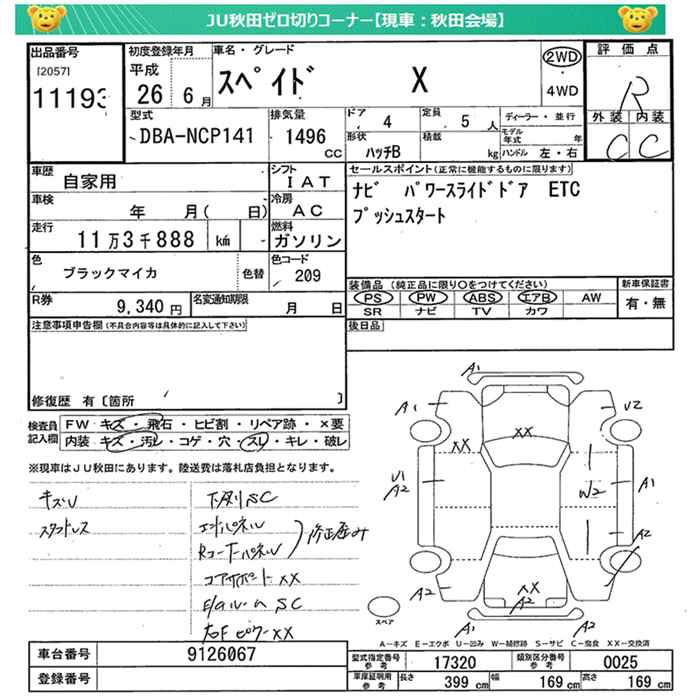 JU秋田ゼロ切りコーナー【現車：秋田会場】
出品番号
[2057]
11193
初度登録年月
平成
26 6月
車名・グレード
スペイド X
2WD
4WD
評価点
R
外装 内装
C C
型式
DBA-NCP141
排気量
1496 CC
ドア 4
定員 5 人
形状 ハッチB
積載 kg
ディーラー・並行
モデル年式 年
ハンドル 左・右
車歴 自家用
シフト IAT
車検 年 月( 日)
冷房 AC
走行 11万3千888 km
燃料 ガソリン
色 ブラックマイカ 色替
色コード 209
R券 9,340円
名変通知期限 月 日
セールスポイント(正常に機能するものに限ります)
ナビ パワースライドドア ETC
プッシュスタート
装備品(純正品に限り○をつけてください)
PS PW ABS エアB AW
SR ナビ TV カワ
新車保証書
有・無
後日品
注意事項申告欄(不具合内容等は具体的に記入して下さい)
修復歴 有〔箇所 〕
検査員記入欄
FW キズ・飛石・ヒビ割・リペア跡・×要
内装 キズ・汚レ・コゲ・穴・スレ・キレ・破レ
※現車はJU秋田にあります。陸送費は落札店負担となります。
キズU
スタットレス
下廻りSC
エンドパネル
Rコーナーパネル
修正済み
コアサポート XX
E/gルーム SC
右F ピラー XX
A1
A1
U2
XX
XX
U1
A2
W2
A1
A2
A2
XX
A2
A2
スペア
A-キズ E-エクボ U-凹み W-補修跡 S-サビ C-腐食 XX-交換済
車台番号 9126067
登録番号
型式指定番号 参考 17320
類別区分番号 参考 0025
車庫証明用 参考 長さ 399 cm 幅 169 cm 高さ 169 cm